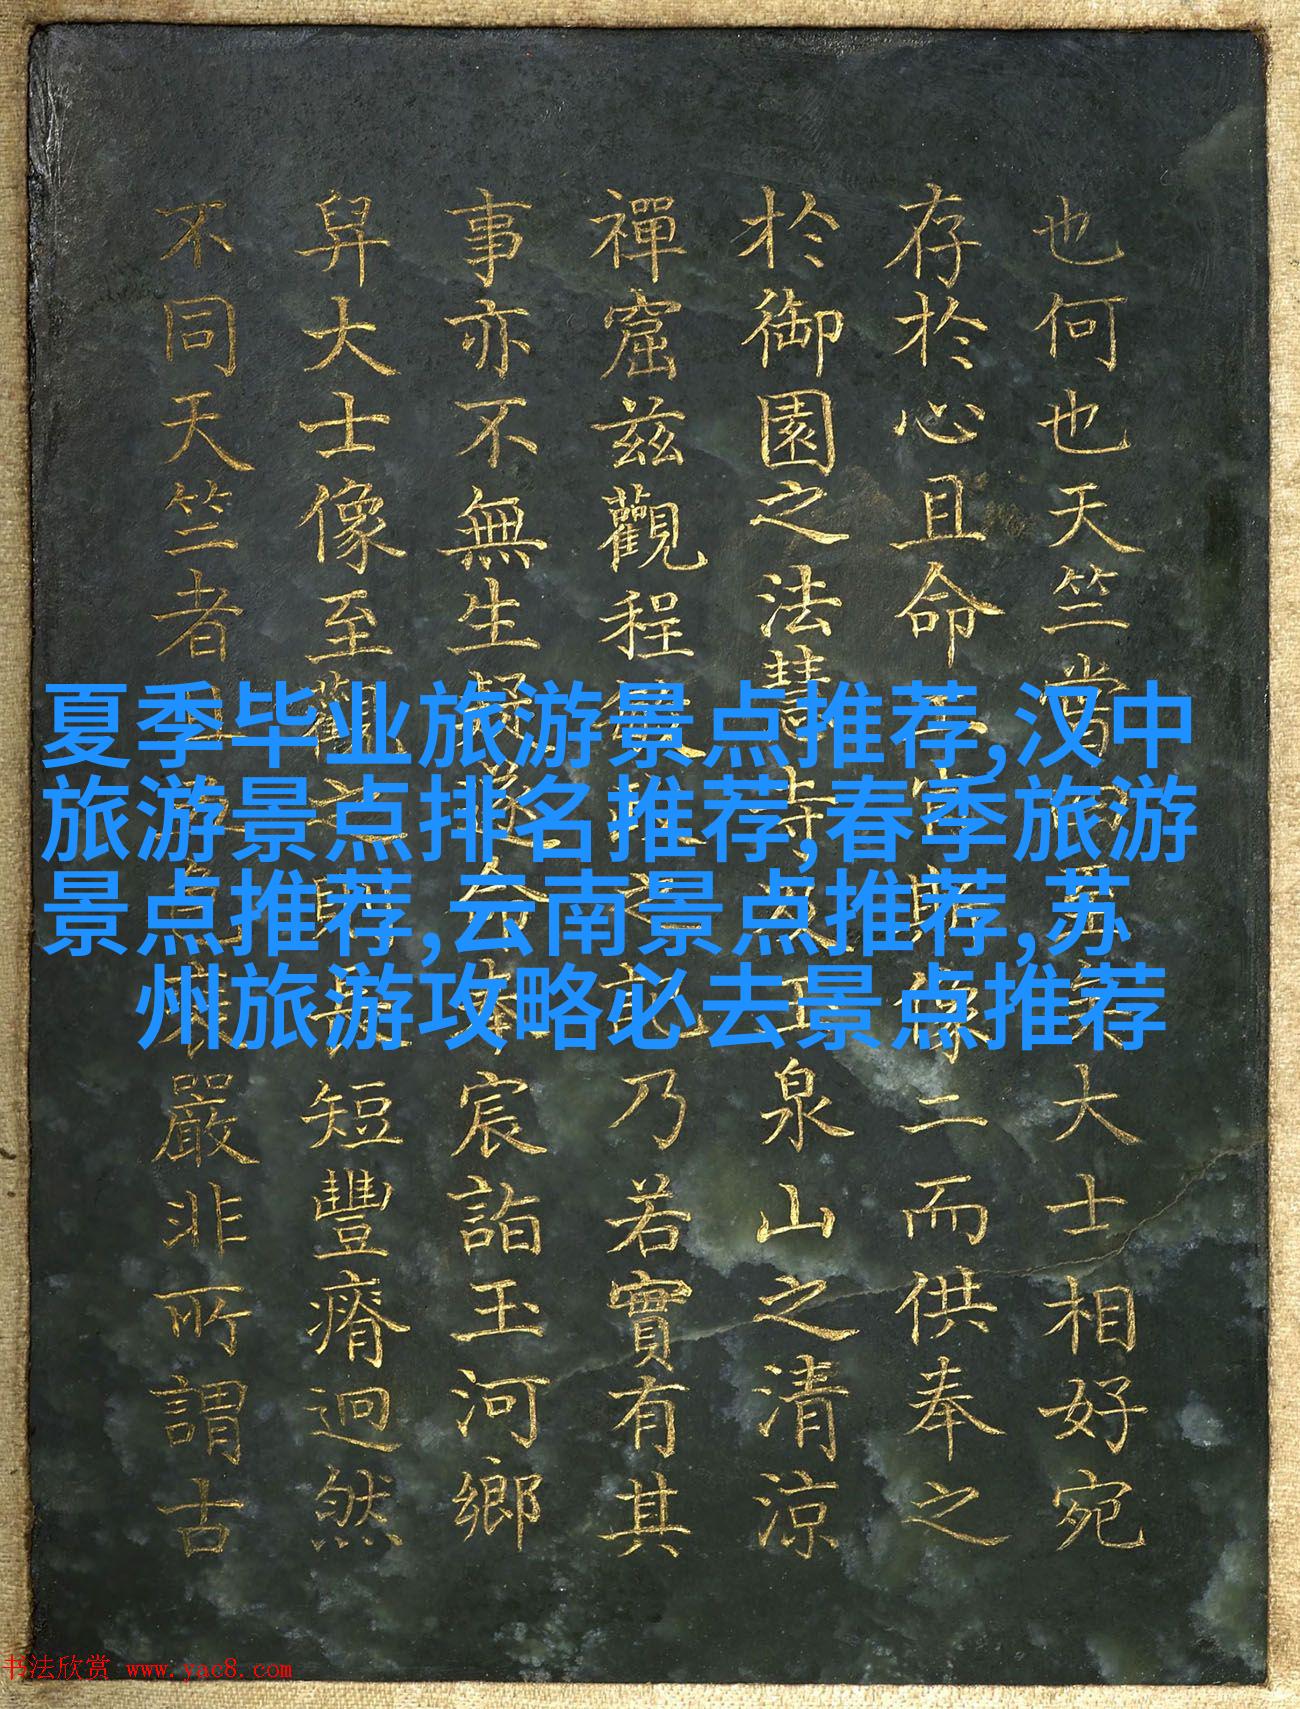 夏季毕业旅游景点推荐,汉中
旅游景点排名推荐,春季旅游
景点推荐,云南景点推荐,苏
州旅游攻略必去景点推荐
也何也天竺當大士相好宛
存於心且命像二而供奉之
於御園之法慧寺泉山之清涼
禪窟茲觀程之乃若實有其
事亦不無生疑遂命奉宸詣玉河鄉
舁大士像至觀之短豐瘠迥然
不同天竺者嚴非所謂古
书法欣赏 www.yac8.com